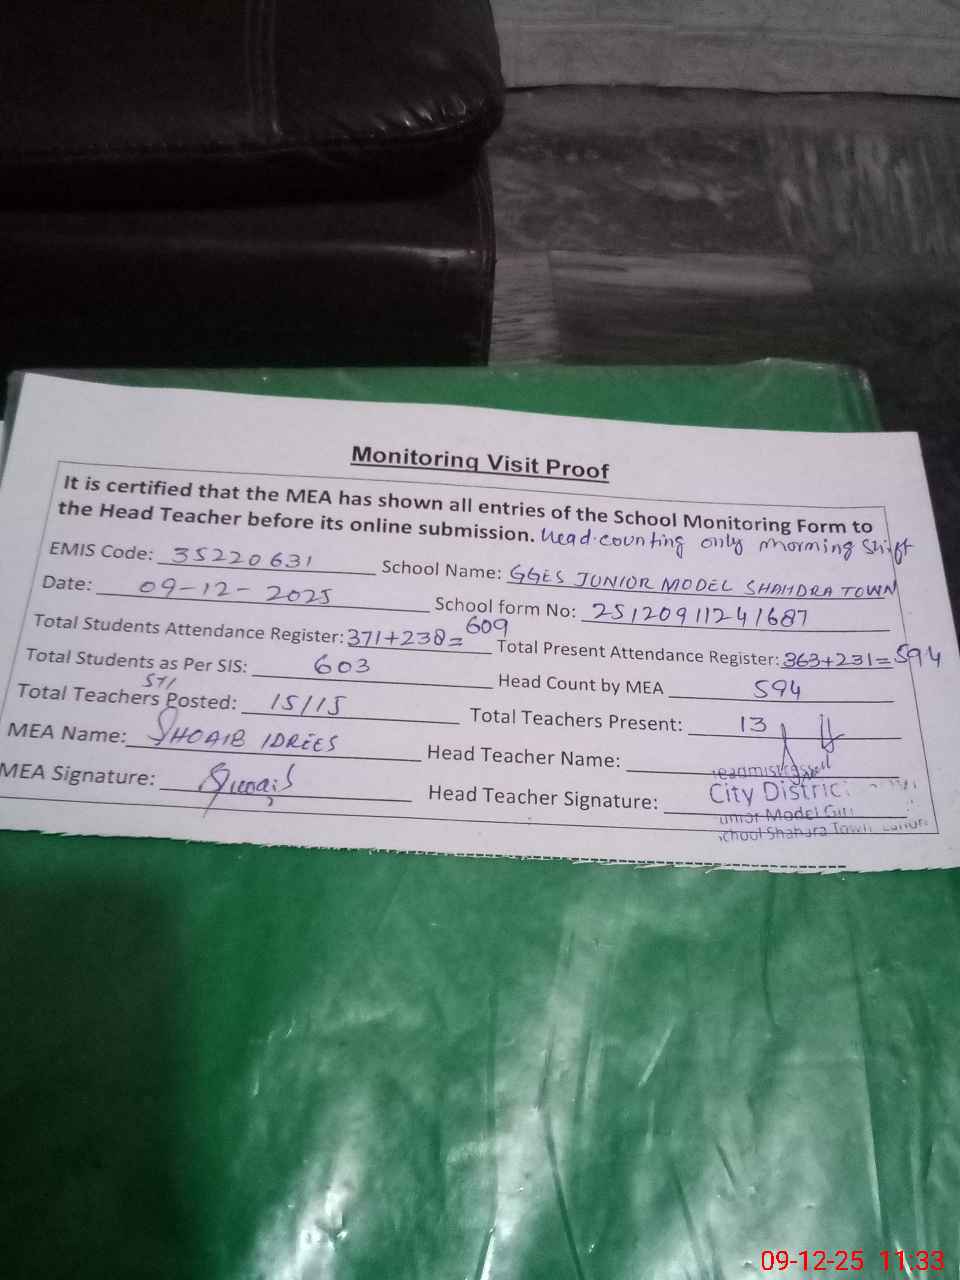 Monitoring Visit Proof
It is certified that the MEA has shown all entries of the School Monitoring Form to
the Head Teacher before its online submission. Head counting only morning shift
EMIS Code: 35220631 School Name: GGES JUNIOR MODEL SHAHDRA TOWN
Date: 09-12-2025 School form No: 25120911241687
Total Students Attendance Register: 371+238=609 Total Present Attendance Register: 363+231=594
Total Students as Per SIS: 603 Head Count by MEA 594
STI
Total Teachers Posted: 15/15 Total Teachers Present: 13
MEA Name: SHOAIB IDREES Head Teacher Name:
MEA Signature: Head Teacher Signature:
City District
Model
Shahdra Town
09-12-25 11:33